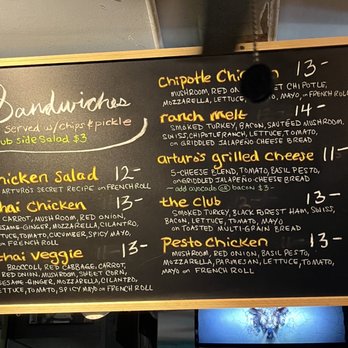 Sandwiches
served w/chips & pickle
sub side salad $3
chicken salad 12-
ARTURO'S SECRET RECIPE on FRENCH ROLL
thai chicken 13-
CARROT, MUSHROOM, RED ONION,
SESAME-GINGER, MOZZARELLA, CILANTRO,
LETTUCE, TOMATO, CUCUMBER, SPICY MAYO
on FRENCH ROLL
thai veggie 13-
BROCCOLI, RED CABBAGE, CARROT,
RED ONION, MUSHROOM, SWEET CORN,
SESAME-GINGER, MOZZARELLA, CILANTRO,
LETTUCE, TOMATO, SPICY MAYO on FRENCH ROLL
Chipotle Chicken 13-
MUSHROOM, RED ONION, SWEET CHIPOTLE,
MOZZARELLA, LETTUCE, TOMATO, MAYO, on FRENCH ROLL
ranch melt 14-
SMOKED TURKEY, BACON, SAUTÉED MUSHROOM,
SWISS, CHIPOTLE RANCH, LETTUCE, TOMATO,
on GRIDDLED JALAPEÑO CHEESE BREAD
arturo's grilled cheese 11-
5-CHEESE BLEND, TOMATO, BASIL PESTO,
on GRIDDLED JALAPEÑO CHEESE BREAD
-add avocado OR bacon $3-
the club 13-
SMOKED TURKEY, BLACK FOREST HAM, SWISS,
BACON, LETTUCE, TOMATO, MAYO
on TOASTED MULTI-GRAIN BREAD
Pesto Chicken 13-
MUSHROOM, RED ONION, BASIL PESTO,
MOZZARELLA, PARMESAN, LETTUCE, TOMATO,
MAYO on FRENCH ROLL